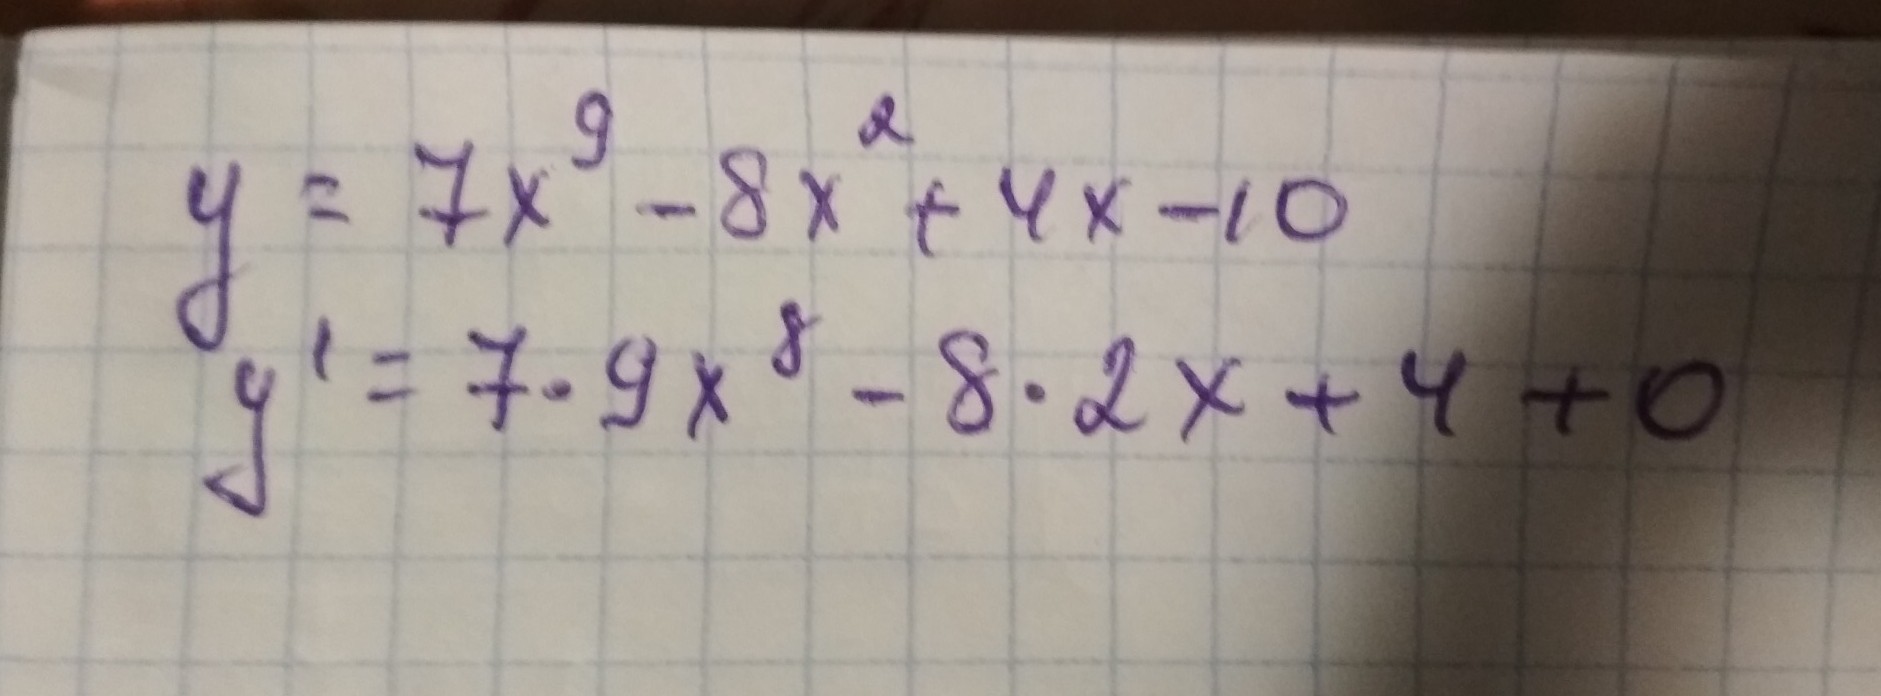 y = 7x⁹ - 8x² + 4x - 10
y' = 7·9x⁸ - 8·2x + 4 + 0